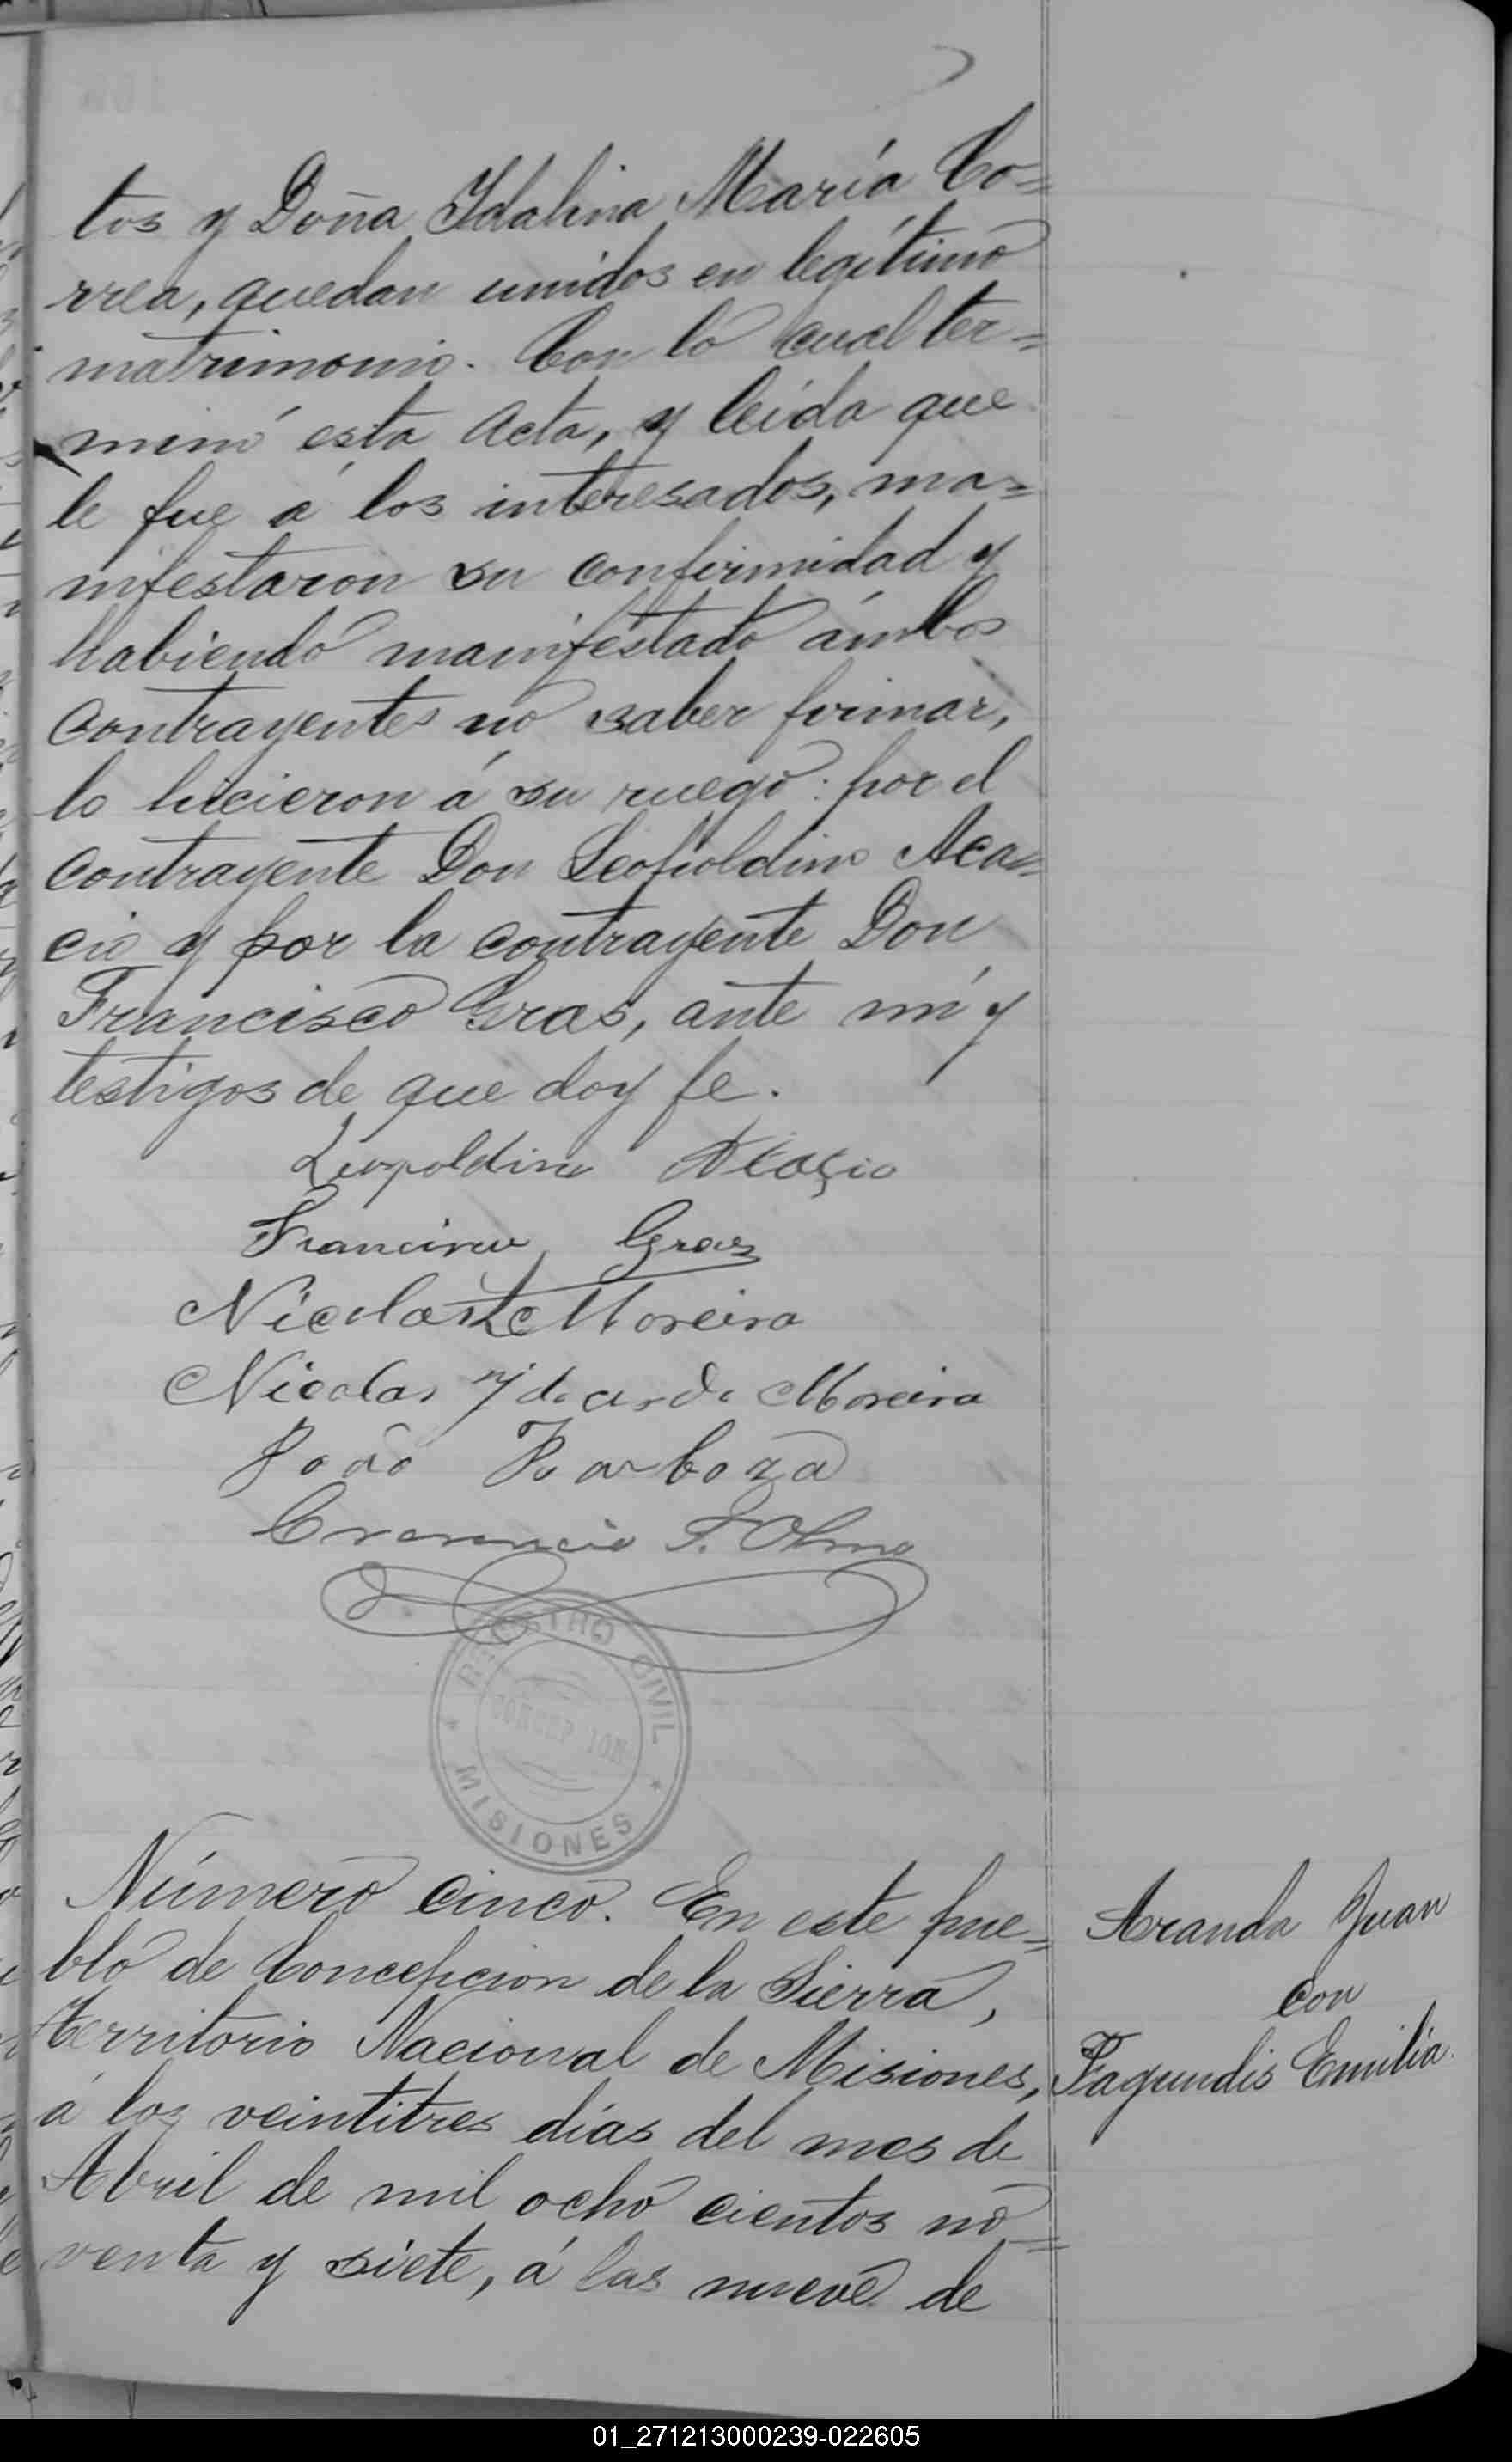 tos y Doña Idalina María Co=
rrea, quedan unidos en legítimo
matrimonio. Con lo cual ter=
minó esta Acta, y leída que
le fue á los interesados, ma=
nifestaron su confirmidad y
habiendo manifestado ámbos
contrayentes no saber firmar,
lo hicieron á su ruego: por el
contrayente Don Leopoldino Aca=
cio y por la contrayente Don
Francisco Gras, ante mí y
testigos de que doy fe.
Leopoldino Acaçio
Francisco Gras
Nicolas Moreira
Nicolas Moreira
João Barboza
F. Olmo
REGISTRO CIVIL
CONCEPCION
MISIONES
Número cinco. En este pue=
blo de Concepcion de la Sierra,
territorio Nacional de Misiones,
á los veintitres días del mes de
Abril de mil ocho cientos no=
venta y siete, á las nueve de
Aranda Juan
con
Fagundis Emilia.
01_271213000239-022605